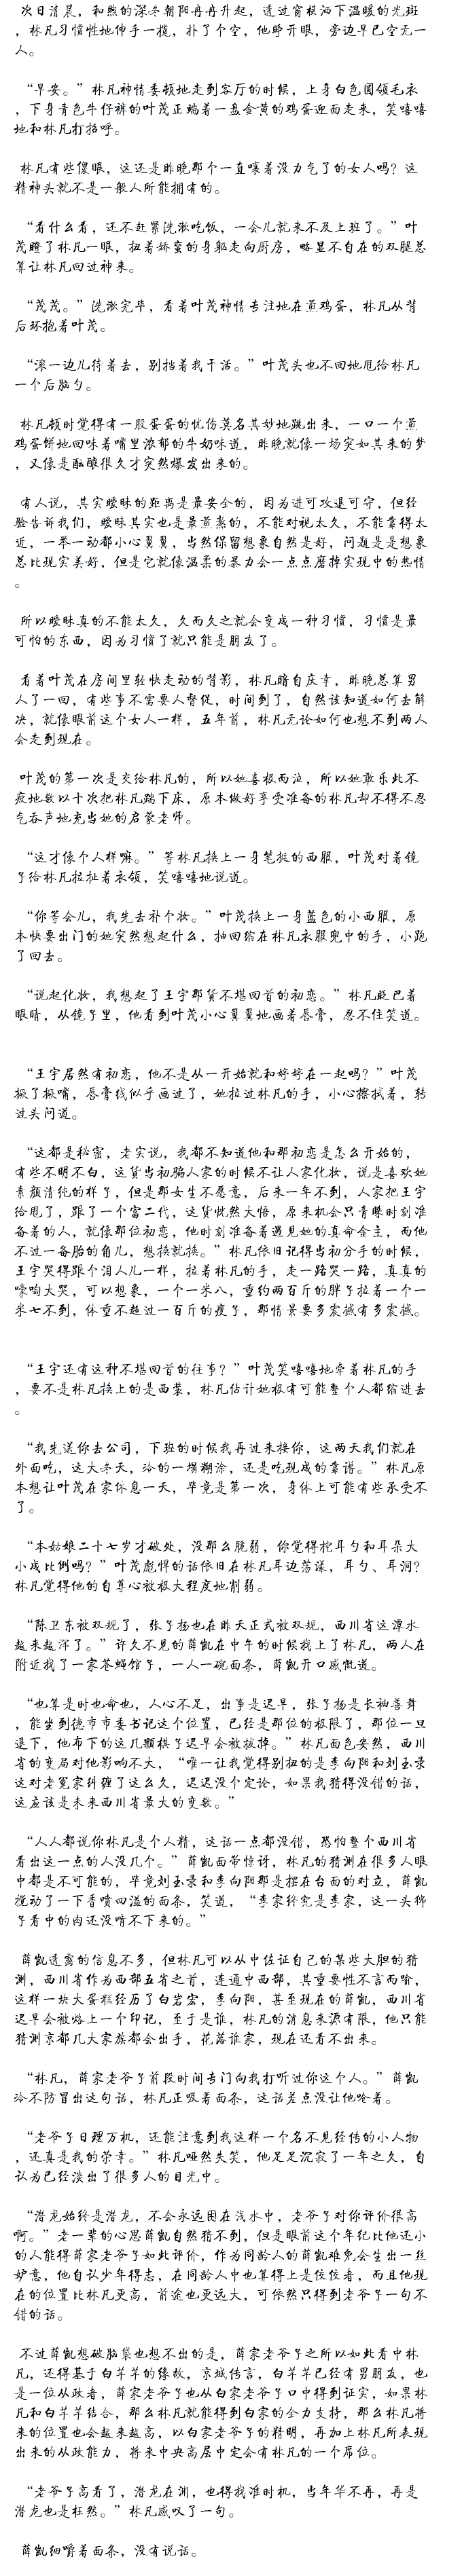 次日清晨，和煦的深冬朝阳冉冉升起，透过窗棂洒下温暖的光斑
，林凡习惯性地伸手一揽，扑了个空，他睁开眼，旁边早已空无一
人。
“早安。”林凡神情委顿地走到客厅的时候，上身白色圆领毛衣
，下身青色牛仔裤的叶茂正端着一盘金黄的鸡蛋迎面走来，笑嘻嘻
地和林凡打招呼。
林凡有些傻眼，这还是昨晚那个一直嚷着没力气了的女人吗？这
精神头就不是一般人所能拥有的。
“看什么看，还不赶紧洗漱吃饭，一会儿就来不及上班了。”叶
茂瞪了林凡一眼，扭着娇蛮的身躯走向厨房，略显不自在的双腿总
算让林凡回过神来。
“茂茂。”洗漱完毕，看着叶茂神情专注地在煎鸡蛋，林凡从背
后环抱着叶茂。
“滚一边儿待着去，别挡着我干活。”叶茂头也不回地甩给林凡
一个后脑勺。
林凡顿时觉得有一股蛋蛋的忧伤莫名其妙地跳出来，一口一个煎
鸡蛋饼地回味着嘴里浓郁的牛奶味道，昨晚就像一场突如其来的梦
，又像是酝酿很久才突然爆发出来的。
有人说，其实暧昧的距离是最安全的，因为进可攻退可守，但经
验告诉我们，暧昧其实也是最煎熬的，不能对视太久，不能靠得太
近，一举一动都小心翼翼，当然保留想象自然是好，问题是是想象
总比现实美好，但是它就像温柔的暴力会一点点磨掉实现中的热情
。
所以暧昧真的不能太久，久而久之就会变成一种习惯，习惯是最
可怕的东西，因为习惯了就只能是朋友了。
看着叶茂在房间里轻快走动的背影，林凡暗自庆幸，昨晚总算男
人了一回，有些事不需要人督促，时间到了，自然该知道如何去解
决，就像眼前这个女人一样，五年前，林凡无论如何也想不到两人
会走到现在。
叶茂的第一次是交给林凡的，所以她喜极而泣，所以她敢乐此不
疲地数以十次把林凡踹下床，原本做好享受准备的林凡却不得不忍
气吞声地充当她的启蒙老师。
“这才像个人样嘛。”等林凡换上一身笔挺的西服，叶茂对着镜
子给林凡拉扯着衣领，笑嘻嘻地说道。
“你等会儿，我先去补个妆。”叶茂换上一身蓝色的小西服，原
本快要出门的她突然想起什么，抽回给在林凡衣服兜中的手，小跑
了回去。
“说起化妆，我想起了王宇那货不堪回首的初恋。”林凡眨巴着
眼睛，从镜子里，他看到叶茂小心翼翼地画着唇膏，忍不住笑道。
“王宇居然有初恋，他不是从一开始就和婷婷在一起吗？”叶茂
抿了抿嘴，唇膏线似乎画过了，她拉过林凡的手，小心擦拭着，转
过头问道。
“这都是秘密，老实说，我都不知道他和那初恋是怎么开始的，
有些不明不白，这货当初骗人家的时候不让人家化妆，说是喜欢她
素颜清纯的样子，但是那女生不愿意，后来一年不到，人家把王宇
给甩了，跟了一个富二代，这货恍然大悟，原来机会只青睐时刻准
备着的人，就像那位初恋，他时刻准备着遇见她的真命金主，而他
不过一备胎的角儿，想换就换。”林凡依旧记得当初分手的时候，
王宇哭得跟个泪人儿一样，拉着林凡的手，走一路哭一路，真真的
嚎啕大哭，可以想象，一个一米八，重约两百斤的胖子拉着一个一
米七不到，体重不超过一百斤的瘦子，那情景要多震撼有多震撼。
“王宇还有这种不堪回首的往事？”叶茂笑嘻嘻地牵着林凡的手
，要不是林凡换上的是西装，林凡估计她极有可能整个人都缩进去
。
“我先送你去公司，下班的时候我再过来接你，这两天我们就在
外面吃，这大冬天，冷的一塌糊涂，还是吃现成的靠谱。”林凡原
本想让叶茂在家休息一天，毕竟是第一次，身体上可能有些承受不
了。
“本姑娘二十七岁才破处，没那么脆弱，你觉得挖耳勺和耳朵大
小成比例吗？”叶茂彪悍的话依旧在林凡耳边荡漾，耳勺、耳洞？
林凡觉得他的自尊心被极大程度地削弱。
“陈卫东被双规了，张子扬也在昨天正式被双规，西川省这潭水
越来越浑了。”许久不见的薛凯在中午的时候找上了林凡，两人在
附近找了一家苍蝇馆子，一人一碗面条，薛凯开口感慨道。
“也算是时也命也，人心不足，出事是迟早，张子扬是长袖善舞
，能坐到德市市委书记这个位置，已经是那位的极限了，那位一旦
退下，他布下的这几颗棋子迟早会被拔掉。”林凡面色安然，西川省
的变局对他影响不大，“唯一让我觉得别扭的是李向阳和刘玉录
这对老冤家纠缠了这么久，迟迟没个定论，如果我猜得没错的话，
这应该是未来西川省最大的变数。”
“人人都说你林凡是个人精，这话一点都没错，恐怕整个西川省
看出这一点的人没几个。”薛凯面带惊讶，林凡的猜测在很多人眼
中都是不可能的，毕竟刘玉录和李向阳那是摆在台面的对立，薛凯
搅动了一下香喷四溢的面条，笑道，“李家终究是李家，这一头狮
子看中的肉还没啃不下来的。”
薛凯透露的信息不多，但林凡可以从中佐证自己的某些大胆的猜
测，西川省作为西部五省之首，连通中西部，其重要性不言而喻，
这样一块大蛋糕经历了白岩宏，李向阳，甚至现在的薛凯，西川省
迟早会被烙上一个印记，至于是谁，林凡的消息来源有限，他只能
猜测京都几大家族都会出手，花落谁家，现在还看不出来。
“林凡，薛家老爷子前段时间专门向我打听过你这个人。”薛凯
冷不防冒出这句话，林凡正吸着面条，这话差点没让他呛着。
“老爷子日理万机，还能注意到我这样一个名不见经传的小人物
，还真是我的荣幸。”林凡哑然失笑，他足足沉寂了一年之久，自
认为已经淡出了很多人的目光中。
“潜龙始终是潜龙，不会永远困在浅水中，老爷子对你评价很高
啊。”老一辈的心思薛凯自然猜不到，但是眼前这个年纪比他还小
的人能得薛家老爷子如此评价，作为同龄人的薛凯难免会生出一丝
妒意，他自认少年得志，在同龄人中也算得上是佼佼者，而且他现
在的位置比林凡更高，前途也更远大，可依然只得到老爷子一句不
错的话。
不过薛凯想破脑袋也想不出的是，薛家老爷子之所以如此看中林
凡，还得基于白芊芊的缘故，京城传言，白芊芊已经有男朋友，也
是一位从政者，薛家老爷子也从白家老爷子口中得到证实，如果林
凡和白芊芊结合，那么林凡就能得到白家的全力支持，那么林凡将
来的位置也会越来越高，以白家老爷子的精明，再加上林凡所表现
出来的从政能力，将来中央高层中定会有林凡的一个席位。
“老爷子高看了，潜龙在渊，也得找准时机，当年华不再，再是
潜龙也是枉然。”林凡感叹了一句。
薛凯细嚼着面条，没有说话。